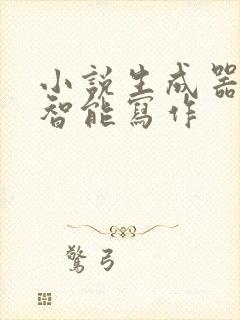 小說生成器
智能寫作
驚弓